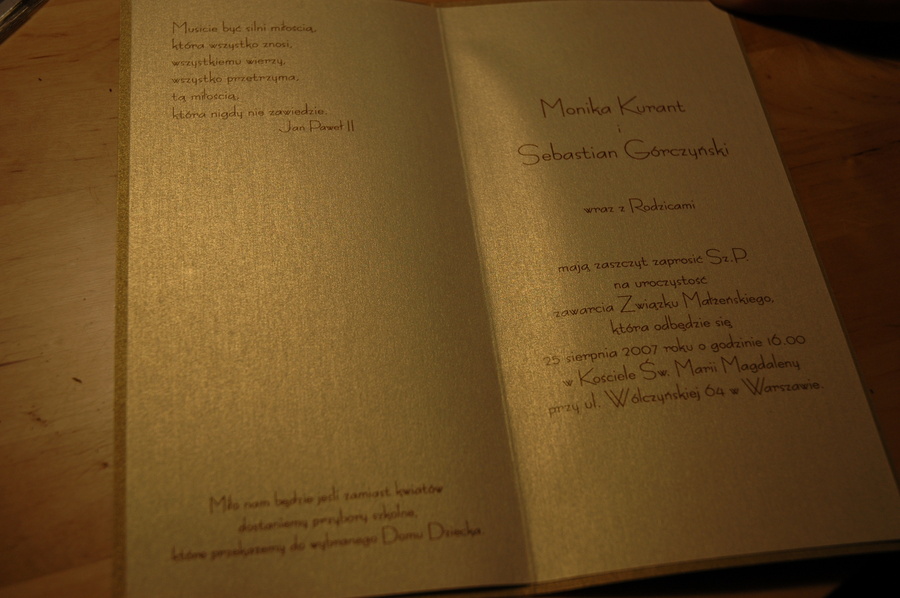 Musicie być silni miłością,
która wszystko znosi,
wszystkiemu wierzy,
wszystko przetrzyma,
tą miłością,
która nigdy nie zawiedzie.
Jan Paweł II
Miło nam będzie jeśli zamiast kwiatów
dostaniemy przybory szkolne,
które przekażemy do wybranego Domu Dziecka.
Monika Kurant
i
Sebastian Górczyński
wraz z Rodzicami
mają zaszczyt zaprosić Sz.P.
na uroczystość
zawarcia Związku Małżeńskiego,
która odbędzie się
25 sierpnia 2007 roku o godzinie 16.00
w Kościele Św. Marii Magdaleny
przy ul. Wólczyńskiej 64 w Warszawie.